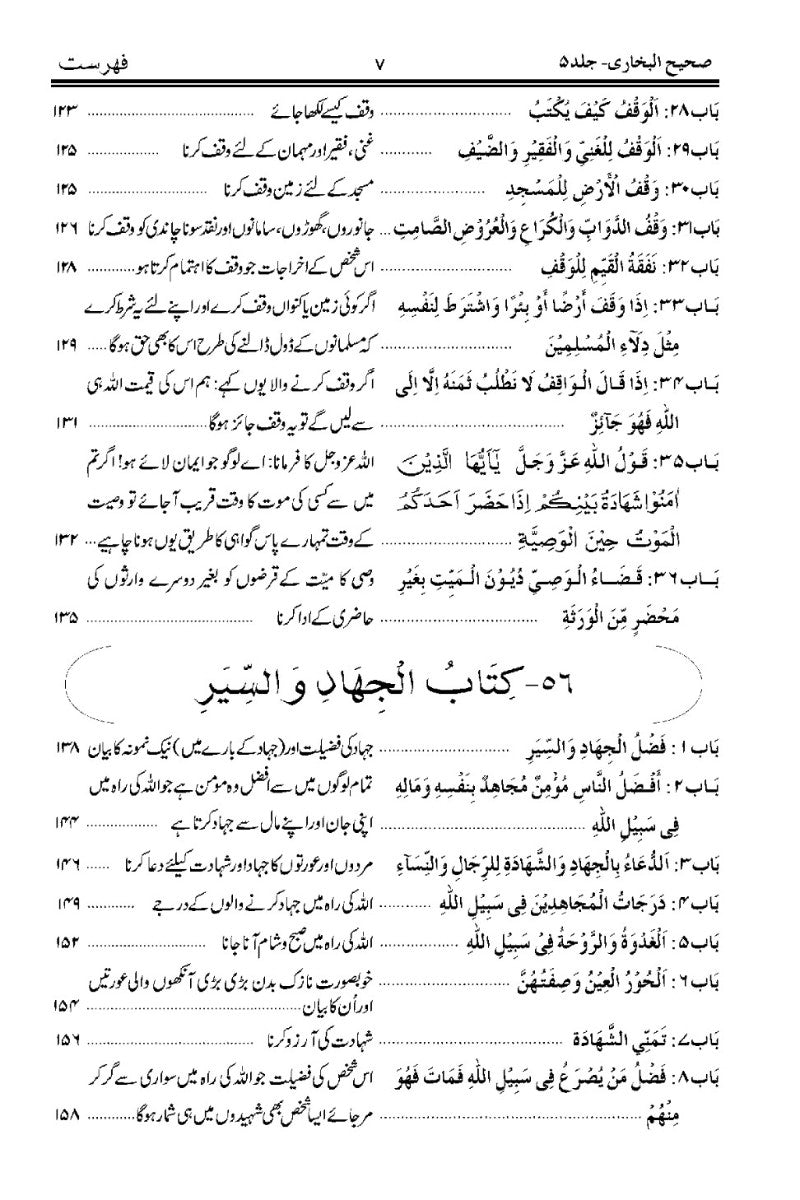 صحیح البخاری - جلد ۵ ۷ فهرست
بَاب ۲۸: اَلْوَقْفُ كَيْفَ يُكْتَبُ .......... وقف کیسے لکھا جائے .......... ۱۲۳
بَاب ۲۹: اَلْوَقْفُ لِلْغَنِيِّ وَالْفَقِيْرِ وَالضَّيْفِ .......... غنی، فقیر اور مہمان کے لئے وقف کرنا .......... ۱۲۵
بَاب ۳۰: وَقْفُ الْأَرْضِ لِلْمَسْجِدِ .......... مسجد کے لئے زمین وقف کرنا .......... ۱۲۵
بَاب ۳۱: وَقْفُ الدَّوَابِّ وَالْكُرَاعِ وَالْعُرُوْضِ الصَّامِتِ ... جانوروں، گھوڑوں، سامانوں اور نقد سونا چاندی کو وقف کرنا ۱۲۶
بَاب ۳۲: نَفَقَةُ الْقَيِّمِ لِلْوَقْفِ .......... اس شخص کے اخراجات جو وقف کا اہتمام کرتا ہو .......... ۱۲۸
بَاب ۳۳: اِذَا وَقَفَ أَرْضًا أَوْ بِئْرًا وَاشْتَرَطَ لِنَفْسِهِ اگر کوئی زمین یا کنواں وقف کرے اور اپنے لئے یہ شرط کرے
مِثْلَ دِلَآءِ الْمُسْلِمِيْنَ .......... کہ مسلمانوں کے ڈول ڈالنے کی طرح اس کا بھی حق ہوگا ..... ۱۲۹
بَاب ۳۴: إِذَا قَالَ الْوَاقِفُ لَا نَطْلُبُ ثَمَنَهُ إِلَّا إِلَى اگر وقف کرنے والا یوں کہے: ہم اس کی قیمت اللہ ہی
اللّٰهِ فَهُوَ جَآئِزٌ .......... سے لیں گے تو یہ وقف جائز ہوگا .......... ۱۳۱
بَاب ۳۵: قَوْلُ اللّٰهِ عَزَّ وَجَلَّ يٰٓاَيُّهَا الَّذِيْنَ اللہ عزوجل کا فرمانا: اے لوگو جو ایمان لائے ہو! اگر تم
اٰمَنُوْا شَهَادَةُ بَيْنِكُمْ اِذَا حَضَرَ اَحَدَكُمُ میں سے کسی کی موت کا وقت قریب آجائے تو وصیت
الْمَوْتُ حِيْنَ الْوَصِيَّةِ .......... کے وقت تمہارے پاس گواہی کا طریق یوں ہونا چاہیے ... ۱۳۲
بَاب ۳۶: قَضَاءُ الْوَصِيِّ دُيُوْنَ الْمَيِّتِ بِغَيْرِ وصی کا میّت کے قرضوں کو بغیر دوسرے وارثوں کی
مَحْضَرٍ مِّنَ الْوَرَثَةِ .......... حاضری کے ادا کرنا .......... ۱۳۵
۵۶- كِتَابُ الْجِهَادِ وَالسِّيَرِ
بَاب ۱: فَضْلُ الْجِهَادِ وَالسِّيَرِ .......... جہاد کی فضیلت اور (جہاد کے بارے میں) نیک نمونہ کا بیان ۱۳۸
بَاب ۲: أَفْضَلُ النَّاسِ مُؤْمِنٌ مُجَاهِدٌ بِنَفْسِهِ وَمَالِهِ تمام لوگوں میں سے افضل وہ مومن ہے جو اللہ کی راہ میں
فِي سَبِيْلِ اللّٰهِ .......... اپنی جان اور اپنے مال سے جہاد کرتا ہے .......... ۱۴۴
بَاب ۳: اَلدُّعَاءُ بِالْجِهَادِ وَالشَّهَادَةِ لِلرِّجَالِ وَالنِّسَآءِ مردوں اور عورتوں کا جہاد اور شہادت کیلئے دعا کرنا ...... ۱۴۶
بَاب ۴: دَرَجَاتُ الْمُجَاهِدِيْنَ فِي سَبِيْلِ اللّٰهِ .......... اللہ کی راہ میں جہاد کرنے والوں کے درجے .......... ۱۴۹
بَاب ۵: اَلْغَدْوَةُ وَالرَّوْحَةُ فِيْ سَبِيْلِ اللّٰهِ .......... اللہ کی راہ میں صبح و شام آنا جانا .......... ۱۵۲
بَاب ۶: اَلْحُوْرُ الْعِيْنُ وَصِفَتُهُنَّ .......... خوبصورت نازک بدن بڑی بڑی آنکھوں والی عورتیں
اور اُن کا بیان .......... ۱۵۴
بَاب ۷: تَمَنِّي الشَّهَادَة .......... شہادت کی آرزو کرنا .......... ۱۵۶
بَاب ۸: فَضْلُ مَنْ يُصْرَعُ فِي سَبِيْلِ اللّٰهِ فَمَاتَ فَهُوَ اس شخص کی فضیلت جو اللہ کی راہ میں سواری سے گر کر
مِنْهُمْ .......... مر جائے ایسا شخص بھی شہیدوں میں ہی شمار ہوگا .......... ۱۵۸